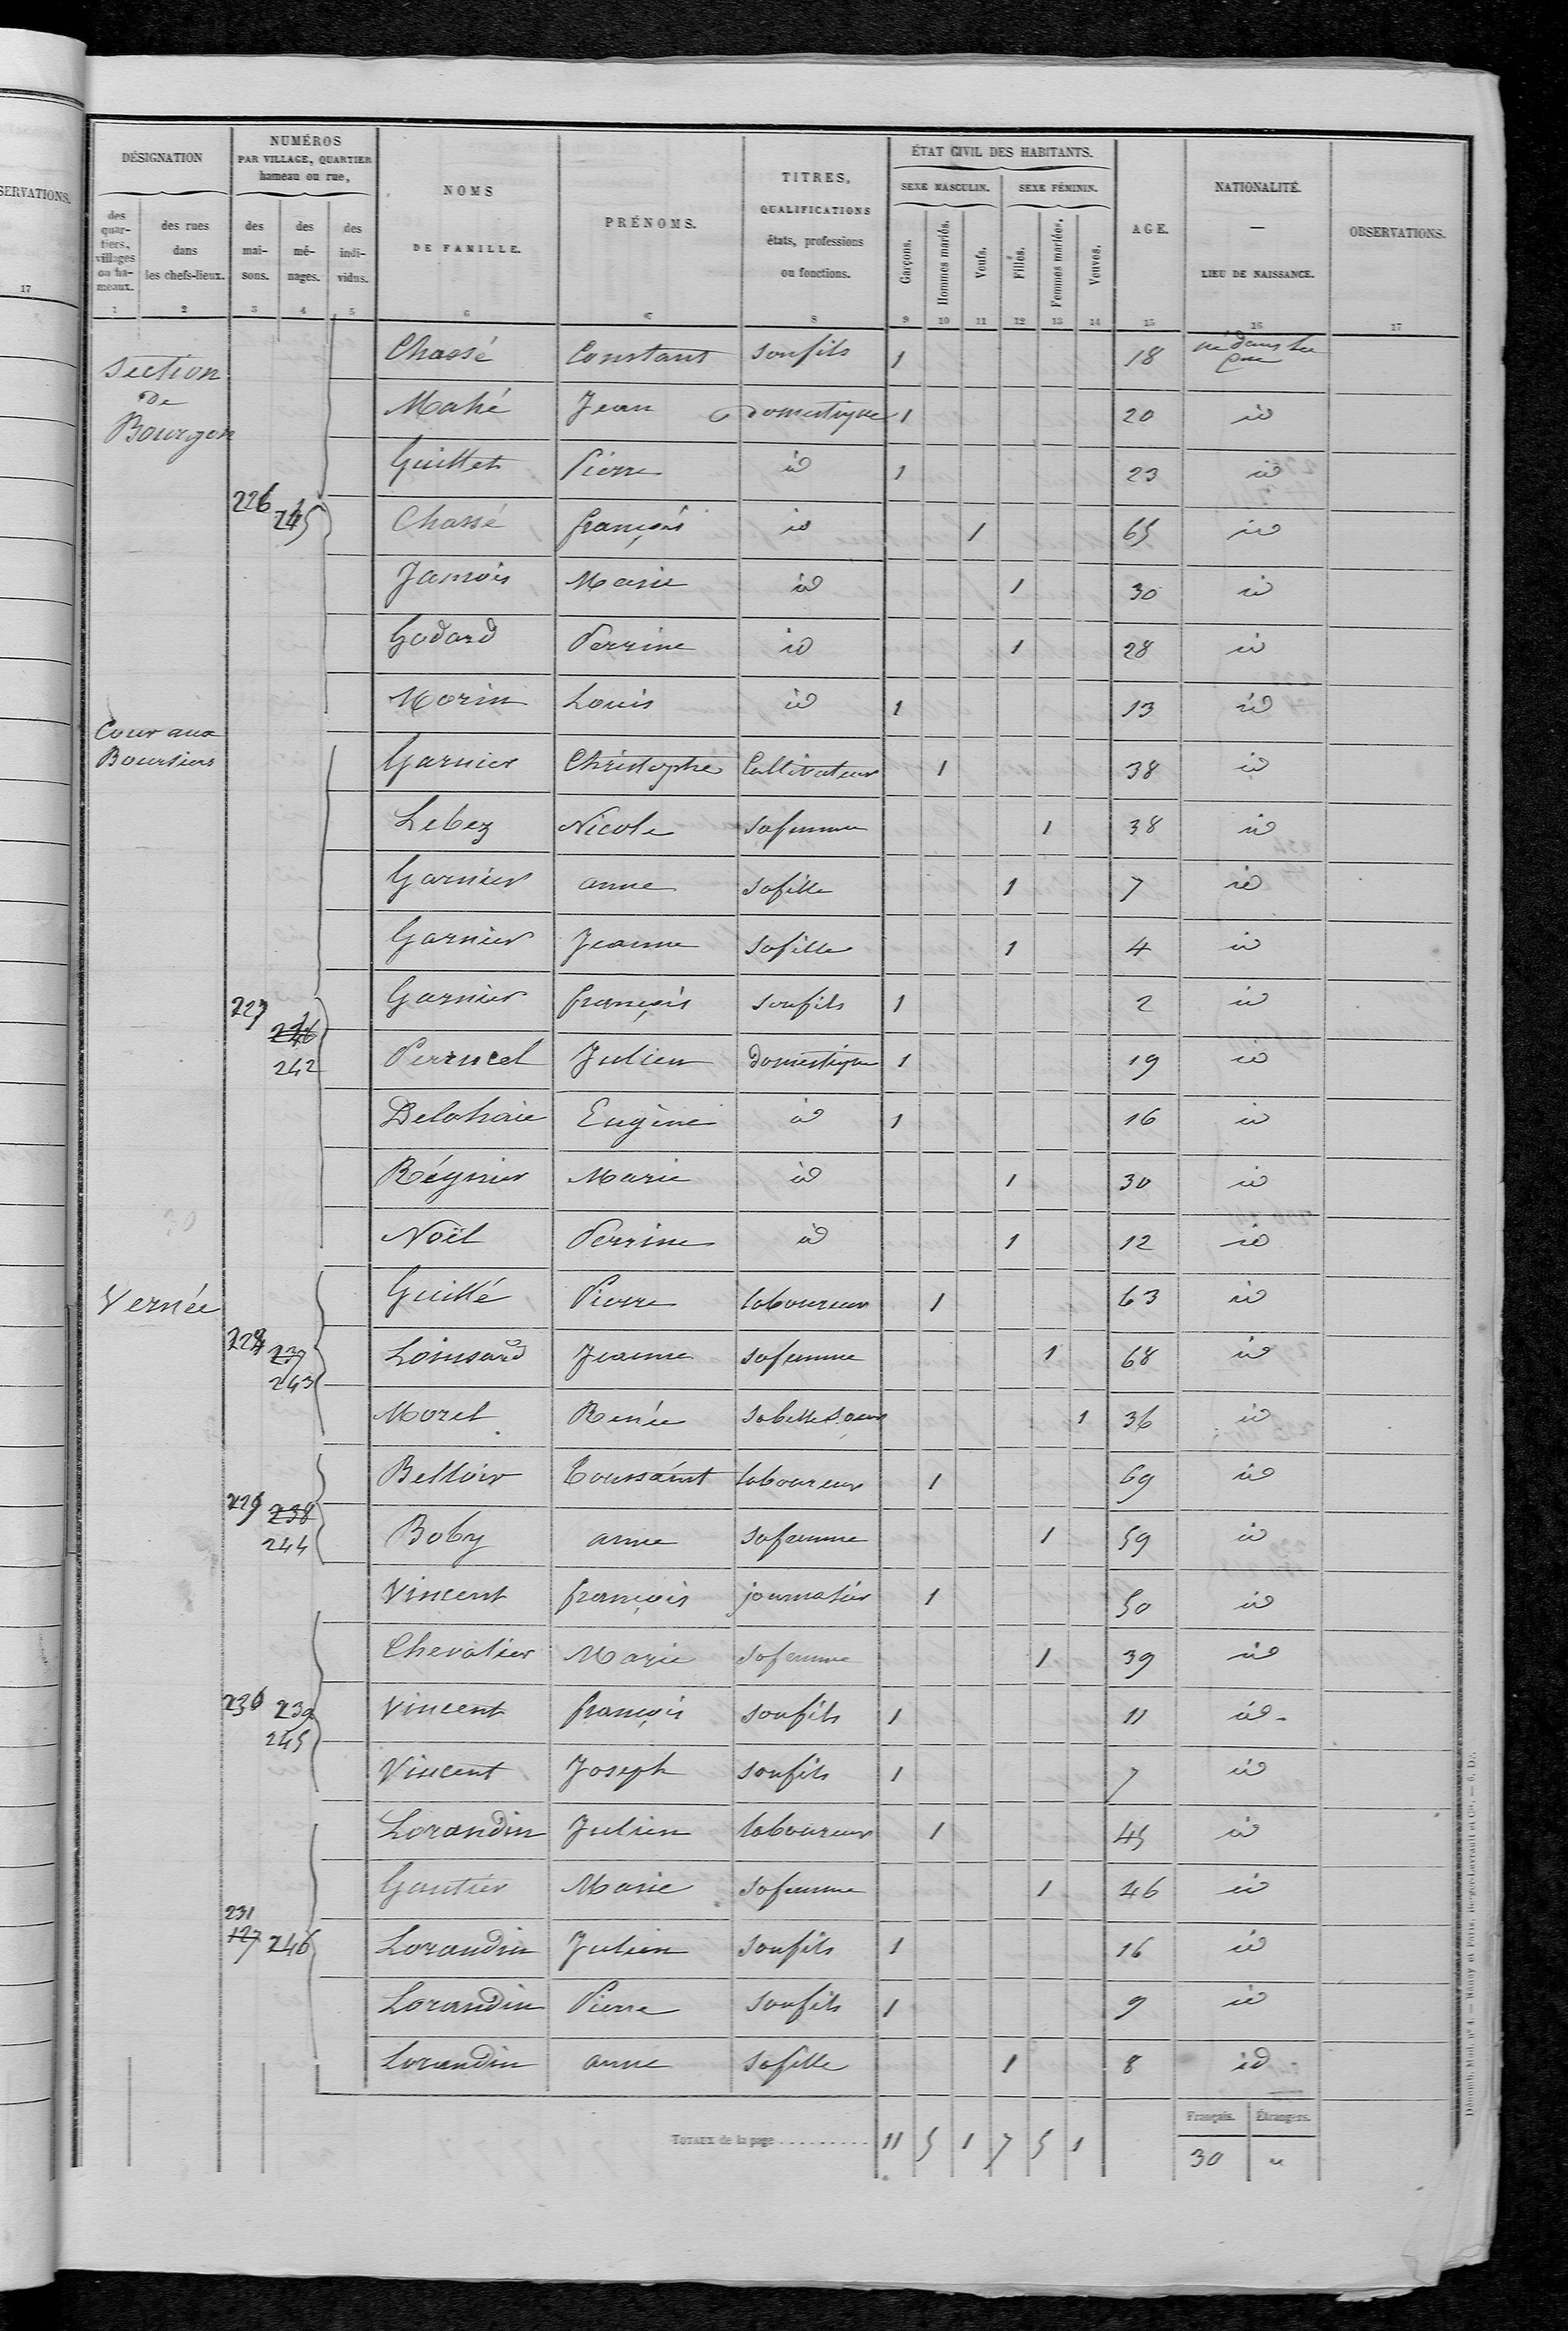 SERVATIONS.
17
DÉSIGNATION
NUMÉROS
PAR VILLAGE, QUARTIER
hameau ou rue,
des quar- tiers, villages ou ha- meaux.
des rues dans les chefs-lieux.
des mai- sons.
des mé- nages.
des indi- vidus.
NOMS
DE FAMILLE.
PRÉNOMS.
TITRES,
QUALIFICATIONS
états, professions
ou fonctions.
ÉTAT CIVIL DES HABITANTS.
SEXE MASCULIN. SEXE FÉMININ.
Garçons. Hommes mariés. Veufs. Filles. Femmes mariées. Veuves.
AGE.
NATIONALITÉ.
—
LIEU DE NAISSANCE.
OBSERVATIONS.
1 2 3 4 5 6 7 8 9 10 11 12 13 14 15 16 17
Section
de
Bourgon
Chassé Constant son fils 1 18 né dans la
Mahé Jean domestique 1 20 id
Guillet Pierre id 1 23 id
226 245 Chassé françois id 1 65 id
Jamois Marie id 1 30 id
Godard Perrine id 1 28 id
Morin Louis id 1 13 id
Cour aux
Boursiers
Garnier Christophe Cultivateur 1 38 id
Lebez Nicole sa femme 1 38 id
Garnier anne sa fille 1 7 id
Garnier Jeanne sa fille 1 4 id
227 246 Garnier françois son fils 1 2 id
242 Perrucel Julien domestique 1 19 id
Delahaie Eugène id 1 16 id
Régnier Marie id 1 30 id
Noël Perrine id 1 12 id
Vernée Guillé Pierre laboureur 1 63 id
228 237 Loinsard Jeanne sa femme 1 68 id
243
Morel Renée sa belle soeur 1 36 id
Belloir Toussaint laboureur 1 69 id
229 238
244 Boby anne sa femme 1 59 id
Vincent françois journalier 1 50 id
Chevalier Marie sa femme 1 39 id
230 239 Vincent françois son fils 1 11 id
245
Vincent Joseph son fils 1 7 id
Lorandin Julien laboureur 1 45 id
Gautier Marie sa femme 1 46 id
231
127 246 Lorandin Julien son fils 1 16 id
Lorandin Pierre son fils 1 9 id
Lorandin anne sa fille 1 8 id
Français. Étrangers.
TOTAUX de la page .......... 11 5 1 7 5 1 30 "